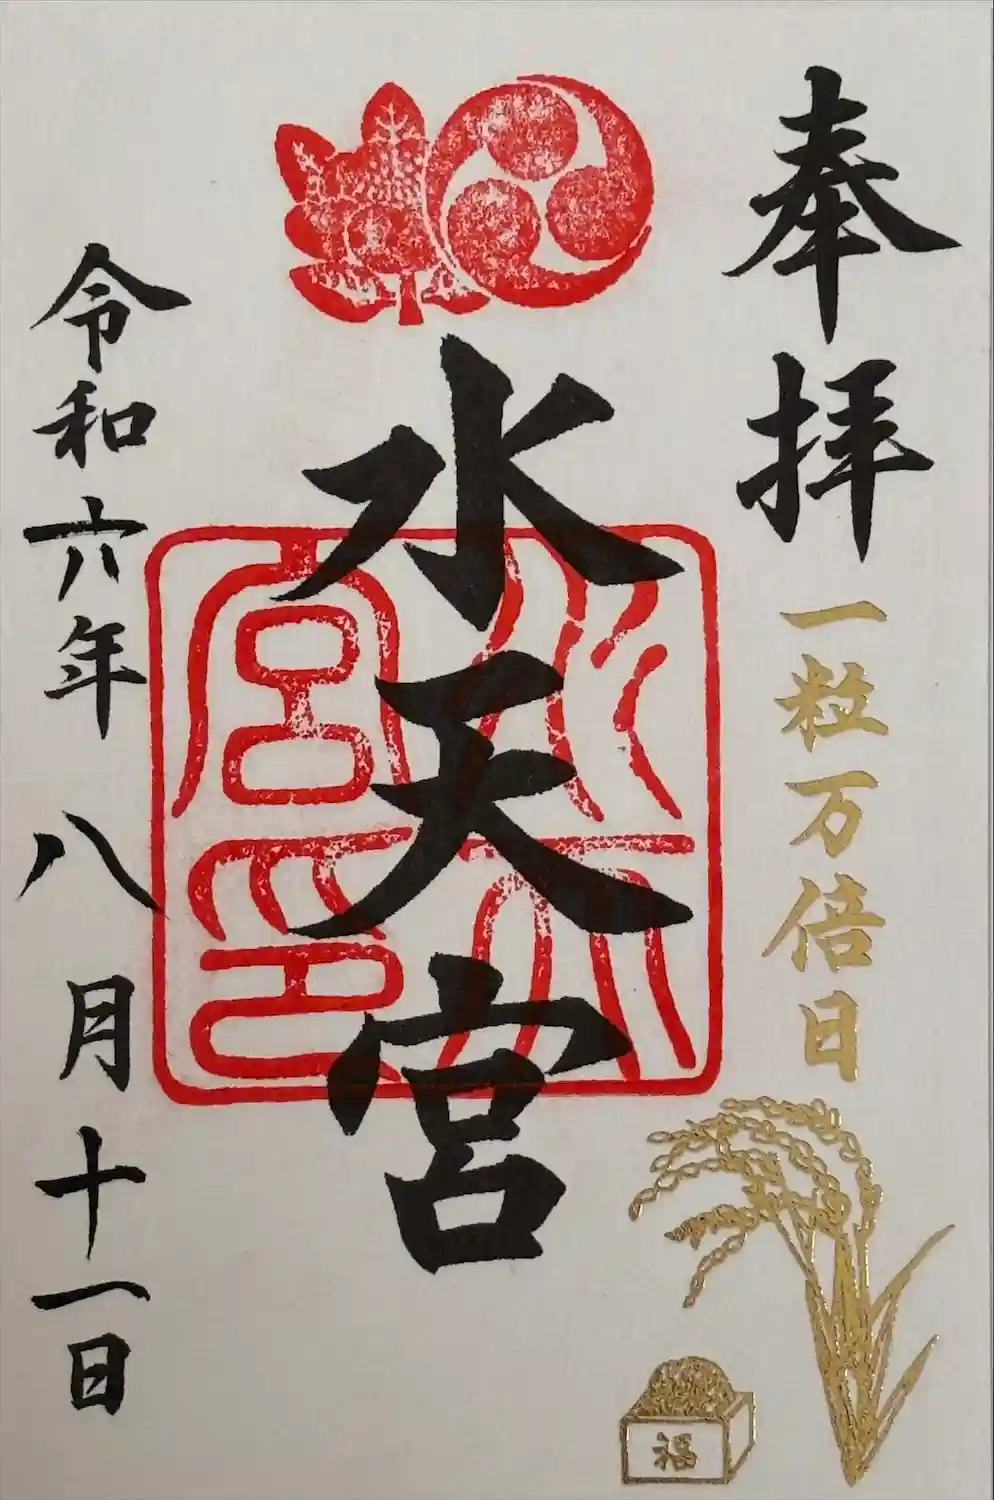 奉拝
一粒万倍日
福
水天宮
水天宮印
令和六年八月十一日